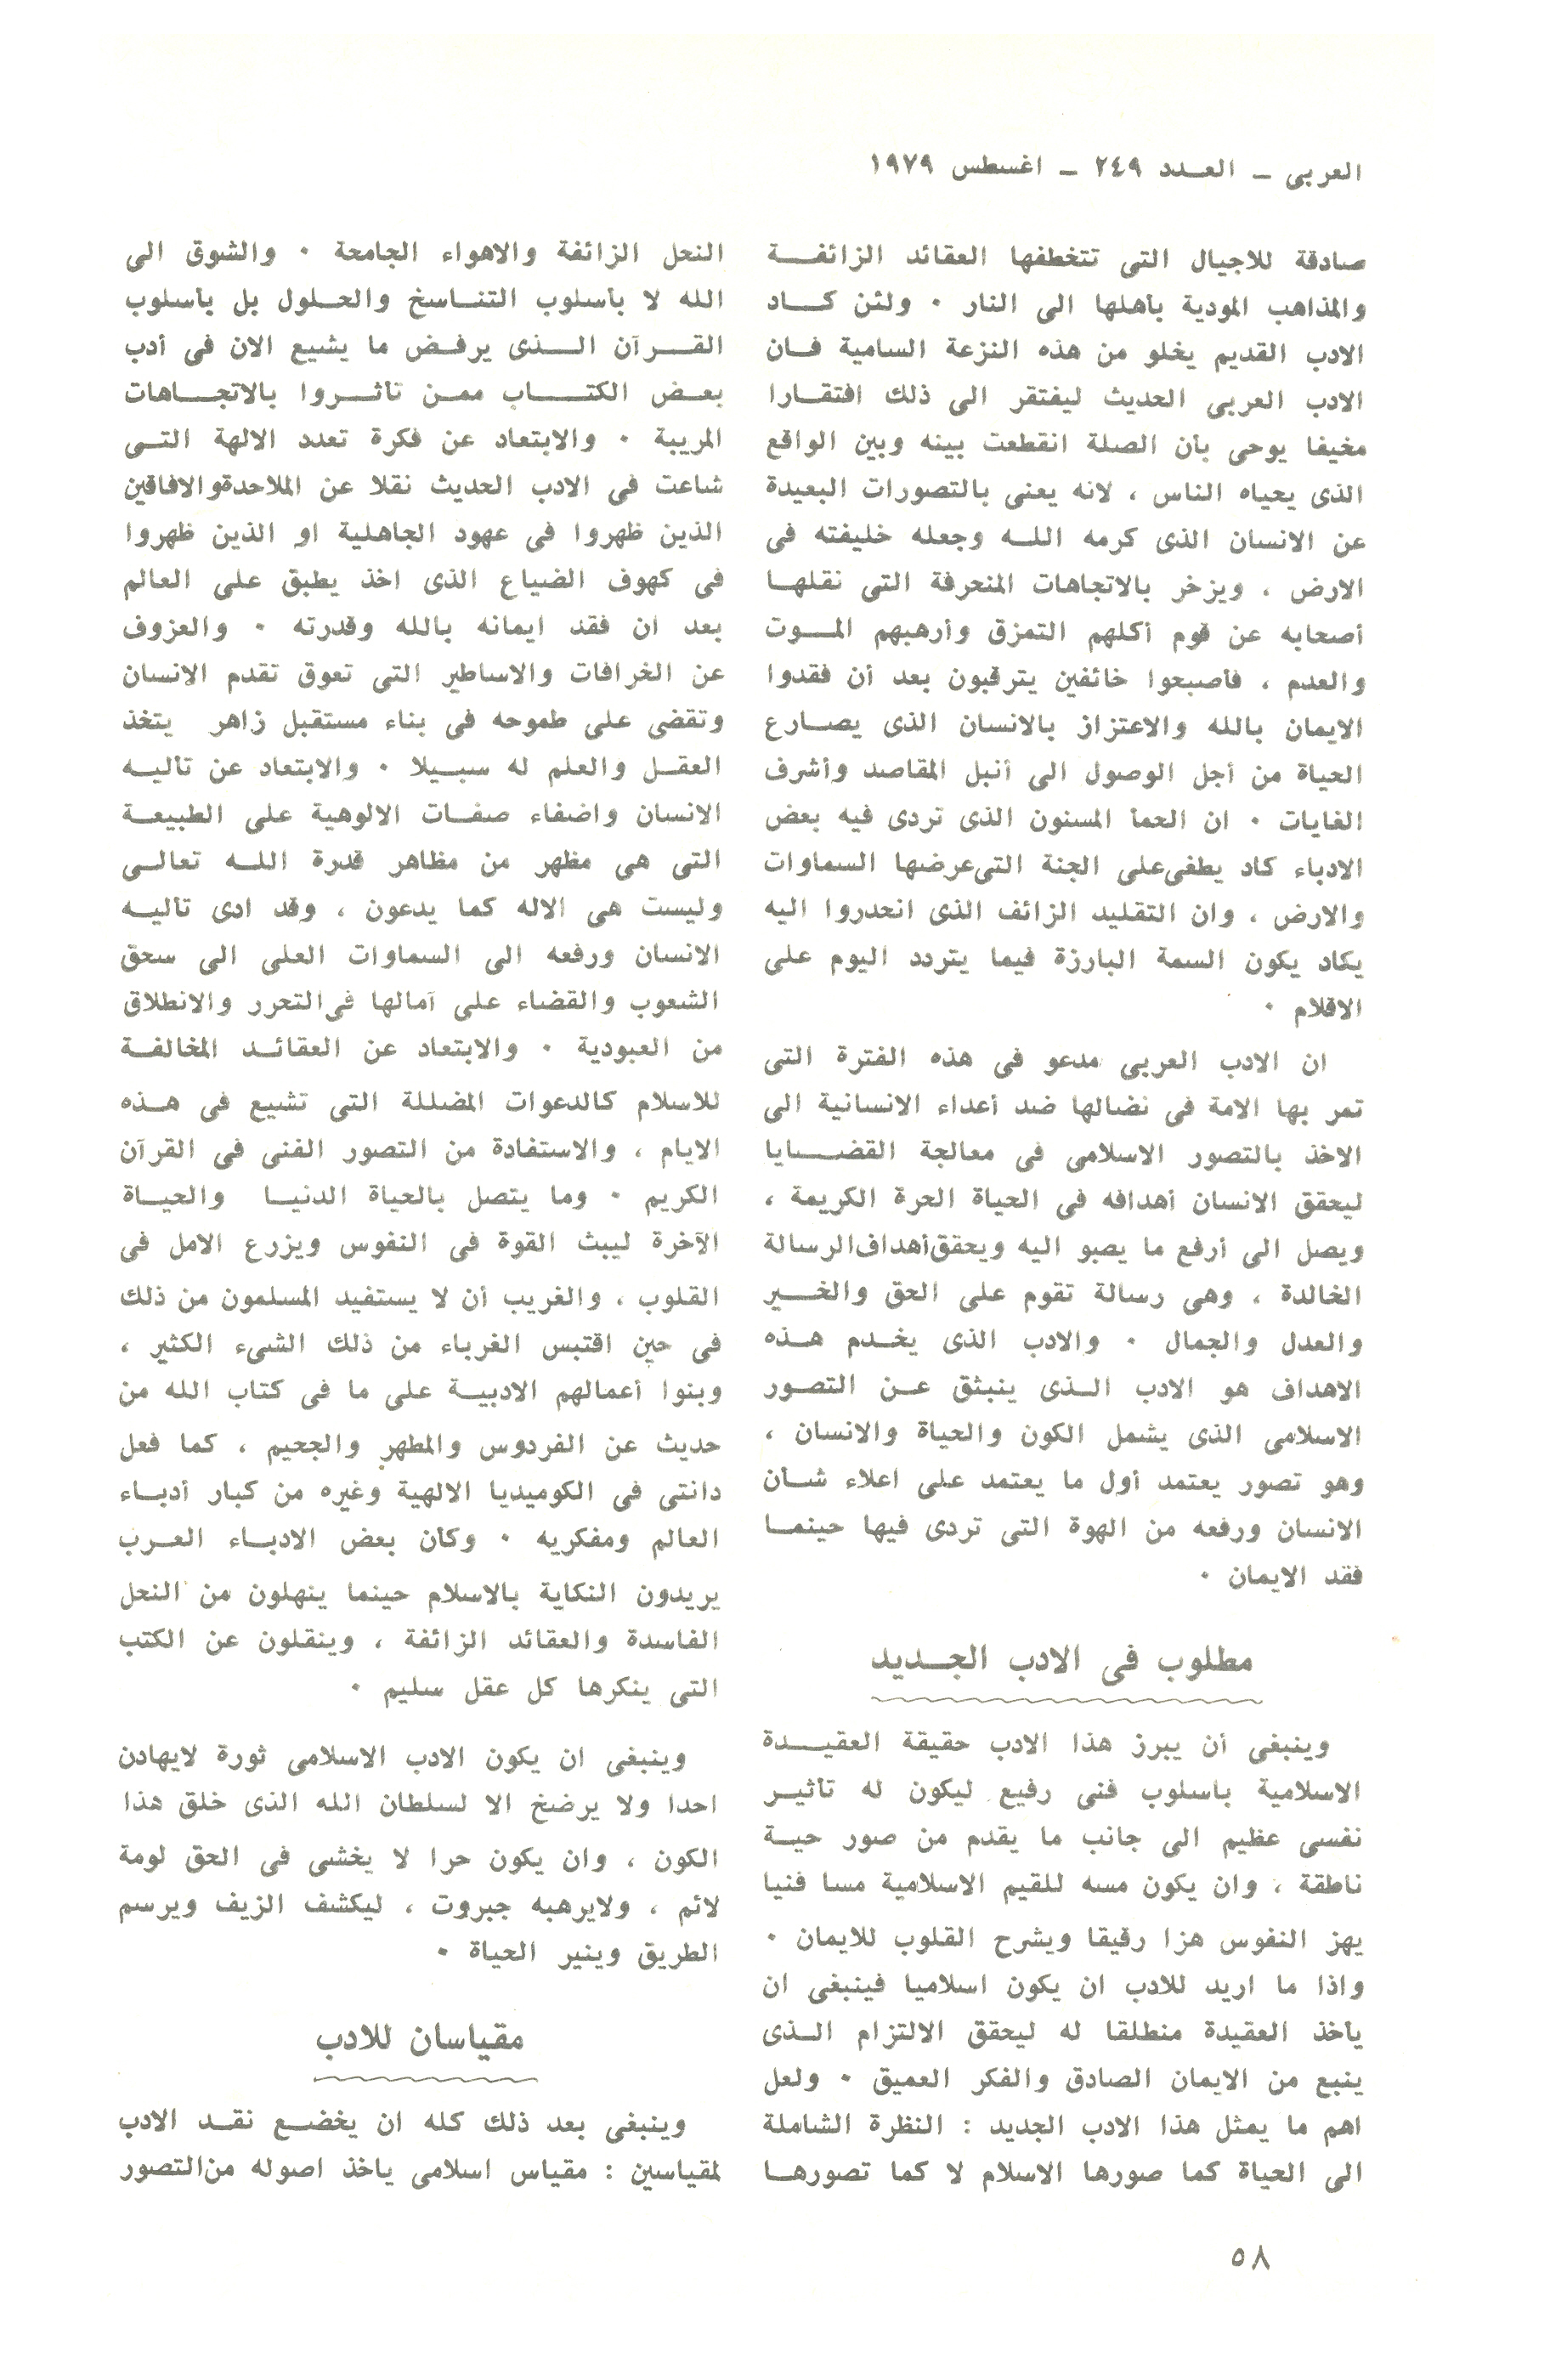 العربى ـ العدد ٢٤٩ ـ اغسطس ١٩٧٩
صادقة للاجيال التى تتخطفها العقائد الزائفة
والمذاهب المودية بأهلها الى النار ٠ ولئن كاد
الادب القديم يخلو من هذه النزعة السامية فان
الادب العربى الحديث ليفتقر الى ذلك افتقارا
مخيفا يوحى بأن الصلة انقطعت بينه وبين الواقع
الذى يحياه الناس ، لانه يعنى بالتصورات البعيدة
عن الانسان الذى كرمه الله وجعله خليفته فى
الارض ، ويزخر بالاتجاهات المنحرفة التى نقلها
أصحابه عن قوم أكلهم التمزق وأرهبهم الموت
والعدم ، فأصبحوا خائفين يترقبون بعد أن فقدوا
الايمان بالله والاعتزاز بالانسان الذى يصارع
الحياة من أجل الوصول الى أنبل المقاصد وأشرف
الغايات ٠ ان الحمأ المسنون الذى تردى فيه بعض
الادباء كاد يطغى على الجنة التى عرضها السماوات
والارض ، وان التقليد الزائف الذى انحدروا اليه
يكاد يكون السمة البارزة فيما يتردد اليوم على
الاقلام ٠
ان الادب العربى مدعو فى هذه الفترة التى
تمر بها الامة فى نضالها ضد أعداء الانسانية الى
الاخذ بالتصور الاسلامى فى معالجة القضايا
ليحقق الانسان أهدافه فى الحياة الحرة الكريمة ،
ويصل الى أرفع ما يصبو اليه ويحقق أهداف الرسالة
الخالدة ، وهى رسالة تقوم على الحق والخير
والعدل والجمال ٠ والادب الذى يخدم هذه
الاهداف هو الادب الذى ينبثق عن التصور
الاسلامى الذى يشمل الكون والحياة والانسان ،
وهو تصور يعتمد أول ما يعتمد على اعلاء شأن
الانسان ورفعه من الهوة التى تردى فيها حينما
فقد الايمان ٠
مطلوب فى الادب الجديد
وينبغى أن يبرز هذا الادب حقيقة العقيدة
الاسلامية بأسلوب فنى رفيع ليكون له تأثير
نفسى عظيم الى جانب ما يقدم من صور حية
ناطقة ، وان يكون مسه للقيم الاسلامية مسا فنيا
يهز النفوس هزا رقيقا ويشرح القلوب للايمان ٠
واذا ما اريد للادب ان يكون اسلاميا فينبغى ان
يأخذ العقيدة منطلقا له ليحقق الالتزام الذى
ينبع من الايمان الصادق والفكر العميق ٠ ولعل
اهم ما يمثل هذا الادب الجديد : النظرة الشاملة
الى الحياة كما صورها الاسلام لا كما تصورها
النحل الزائفة والاهواء الجامحة ٠ والشوق الى
الله لا بأسلوب التناسخ والحلول بل بأسلوب
القرآن الذى يرفض ما يشيع الان فى أدب
بعض الكتاب ممن تأثروا بالاتجاهات
المريبة ٠ والابتعاد عن فكرة تعدد الالهة التى
شاعت فى الادب الحديث نقلا عن الملاحدة والافاقين
الذين ظهروا فى عهود الجاهلية او الذين ظهروا
فى كهوف الضياع الذى اخذ يطبق على العالم
بعد ان فقد ايمانه بالله وقدرته ٠ والعزوف
عن الخرافات والاساطير التى تعوق تقدم الانسان
وتقضى على طموحه فى بناء مستقبل زاهر يتخذ
العقل والعلم له سبيلا ٠ والابتعاد عن تأليه
الانسان واضفاء صفات الالوهية على الطبيعة
التى هى مظهر من مظاهر قدرة الله تعالى
وليست هى الاله كما يدعون ، وقد ادى تأليه
الانسان ورفعه الى السماوات العلى الى سحق
الشعوب والقضاء على آمالها فى التحرر والانطلاق
من العبودية ٠ والابتعاد عن العقائد المخالفة
للاسلام كالدعوات المضللة التى تشيع فى هذه
الايام ، والاستفادة من التصور الفنى فى القرآن
الكريم ٠ وما يتصل بالحياة الدنيا والحياة
الآخرة ليبث القوة فى النفوس ويزرع الامل فى
القلوب ، والغريب أن لا يستفيد المسلمون من ذلك
فى حين اقتبس الغرباء من ذلك الشىء الكثير ،
وبنوا أعمالهم الادبية على ما فى كتاب الله من
حديث عن الفردوس والمطهر والجحيم ، كما فعل
دانتى فى الكوميديا الالهية وغيره من كبار أدباء
العالم ومفكريه ٠ وكأن بعض الادباء العرب
يريدون النكاية بالاسلام حينما ينهلون من النحل
الفاسدة والعقائد الزائفة ، وينقلون عن الكتب
التى ينكرها كل عقل سليم ٠
وينبغى ان يكون الادب الاسلامى ثورة لايهادن
احدا ولا يرضخ الا لسلطان الله الذى خلق هذا
الكون ، وان يكون حرا لا يخشى فى الحق لومة
لائم ، ولايرهبه جبروت ، ليكشف الزيف ويرسم
الطريق وينير الحياة ٠
مقياسان للادب
وينبغى بعد ذلك كله ان يخضع نقد الادب
لمقياسين : مقياس اسلامى يأخذ اصوله من التصور
٥٨